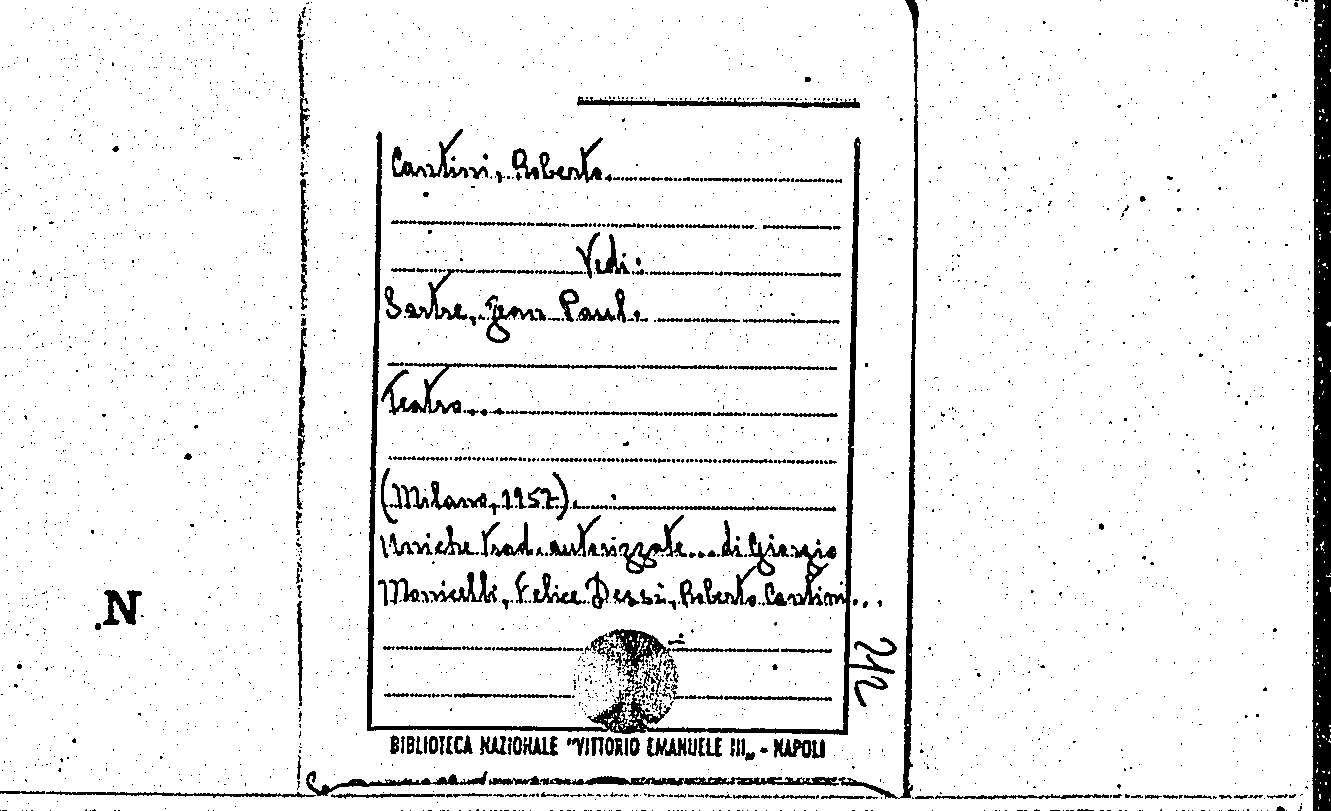 Cantini, Roberto.
Vedi:
Sartre, Jean Paul.
Teatro...
(Milano, 1957).
Uniche trad. autorizzate... di Giorgio
Monicelli, Felice Dessì, Roberto Cantini...
N
212
BIBLIOTECA NAZIONALE "VITTORIO EMANUELE III„ - NAPOLI